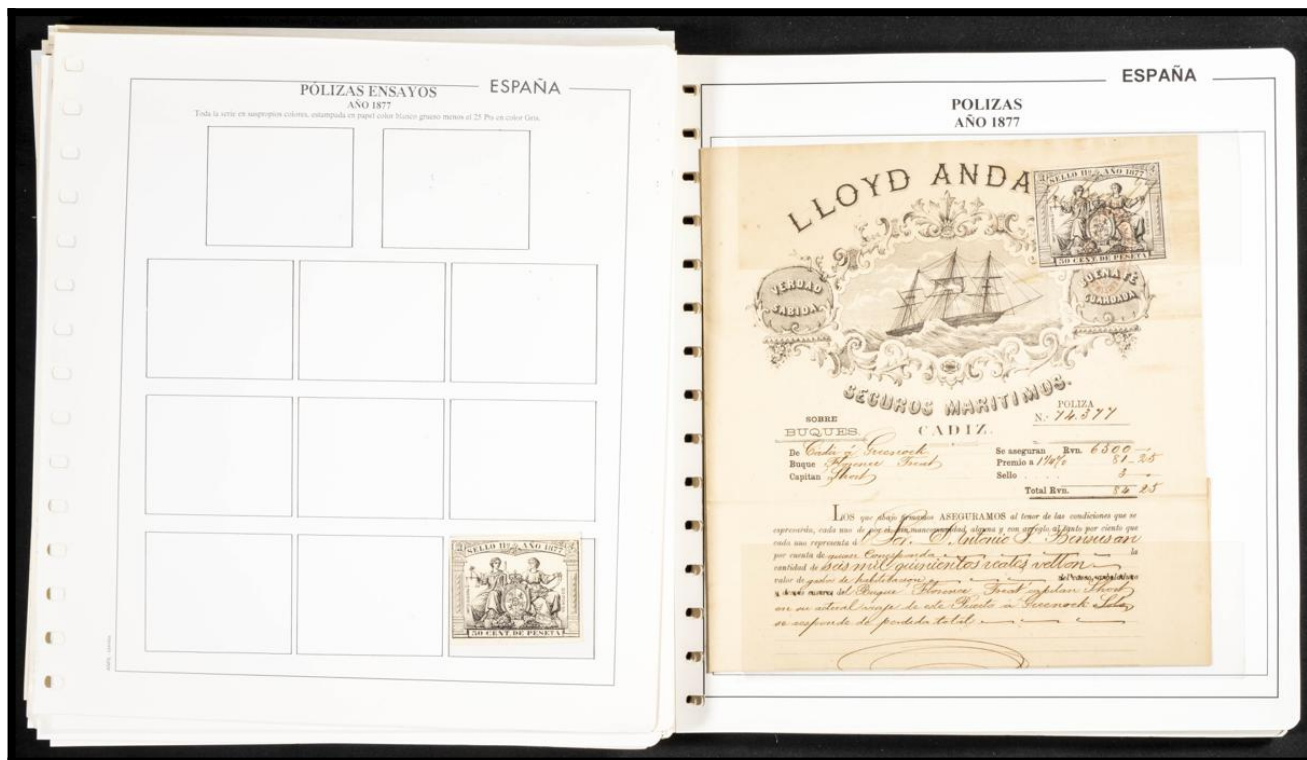 PÓLIZAS ENSAYOS
ESPAÑA
AÑO 1877
Toda la serie en suspropios colores, estampada en papel color blanco grueso menos el 25 Pts en color Gris.
SELLO 11º AÑO 1877
50 CENT. DE PESETA
ESPAÑA
POLIZAS
AÑO 1877
LLOYD ANDA
SELLO 11º AÑO 1877
50 CENT. DE PESETA
VERDAD SABIDA
BUENA FE GUARDADA
SEGUROS MARITIMOS.
CADIZ.
POLIZA
N.º 74.377
SOBRE
BUQUES.
De Cadiz á Greenock
Buque Florence Treat
Capitan Short
Se aseguran Rvn. 6500
Premio a 1¼ % 81-25
Sello 3
Total Rvn. 84 25
LOS que abajo firmados ASEGURAMOS al tenor de las condiciones que se
expresarán, cada uno de por si, sin mancomunidad, alguna y con arreglo al tanto por ciento que
cada uno representa á Sor. D. Antonio
por cuenta de quien Corresponda la
cantidad de seis mil quinientos reales vellon
valor de gastos de habilitacion del casco
del Buque Florence Treat capitan Short
en su actual viaje de este Puerto á Greenock Solo
se responde de perdida total